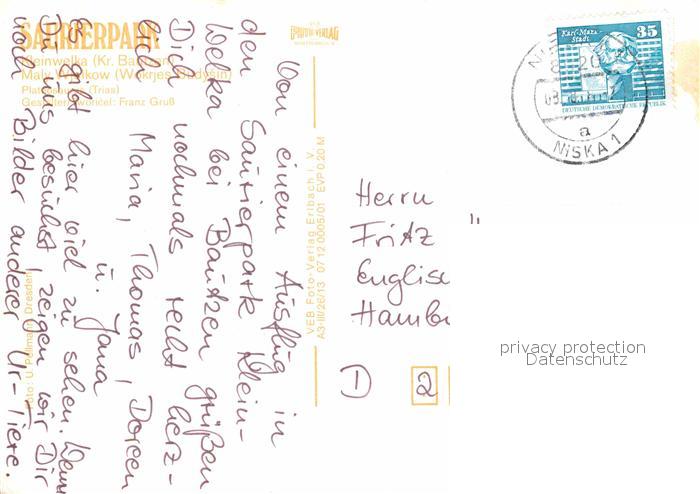 SAURIERPARK
Kleinwelka (Kr. Bautzen)
Maly Wjelkow (Wokrjes Budyšin)
Plateosaurus (Trias)
Gestalter/tworićel: Franz Gruß
Foto: U. Pellmann, Dresden
VEB Foto-Verlag Erlbach i. V.
A3-III/26/13 07 12 0005/01 EVP 0.20 M
Von einem Ausflug in
den Saurierpark Klein-
welka bei Bautzen grüßen
Dich nochmals recht herz-
lich
Maria, Thomas, Doreen
u. Jana
Es gibt hier viel zu sehen. Wenn
Du uns besuchst, zeigen wir Dir
noch Bilder anderer Ur-Tiere.
Karl-Marx-
Stadt
35
DEUTSCHE DEMOKRATISCHE REPUBLIK
a
NISKA 1
Herrn
Fritz
Englisc
Hambu
D
2
privacy protection
Datenschutz